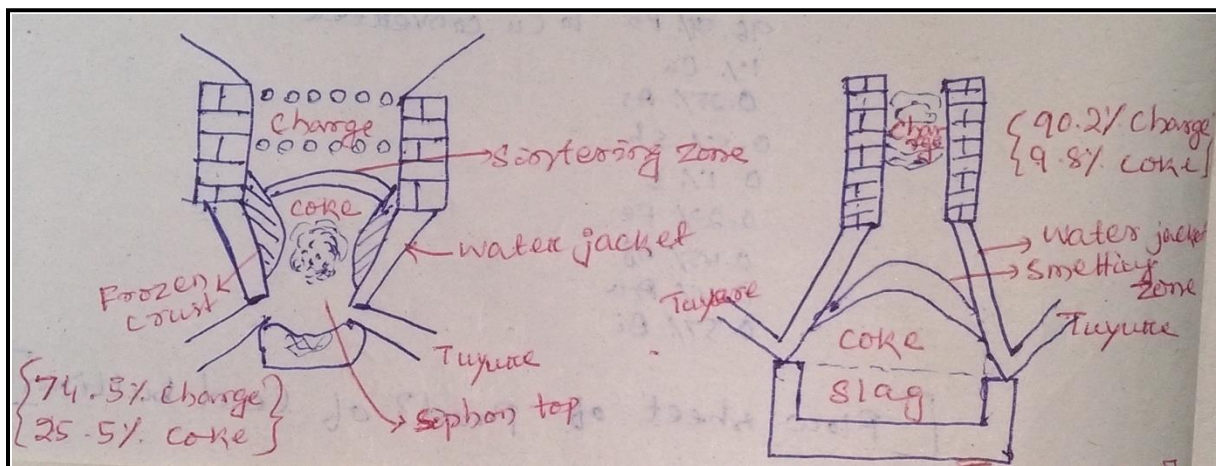 Charge
Sintering zone
coke
water jacket
Frozen
crust
Tuyure
{74.5% Charge}
{25.5% coke}
siphon top
Char
ge
{90.2% Charge}
{9.8% coke}
water jacket
smelting
zone
Tuyere
Tuyure
coke
slag